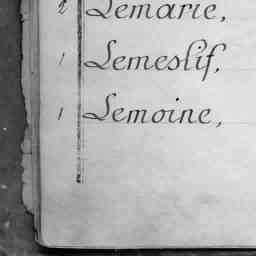 2 Lemarie,
1 Lemeslif,
1 Lemoine,